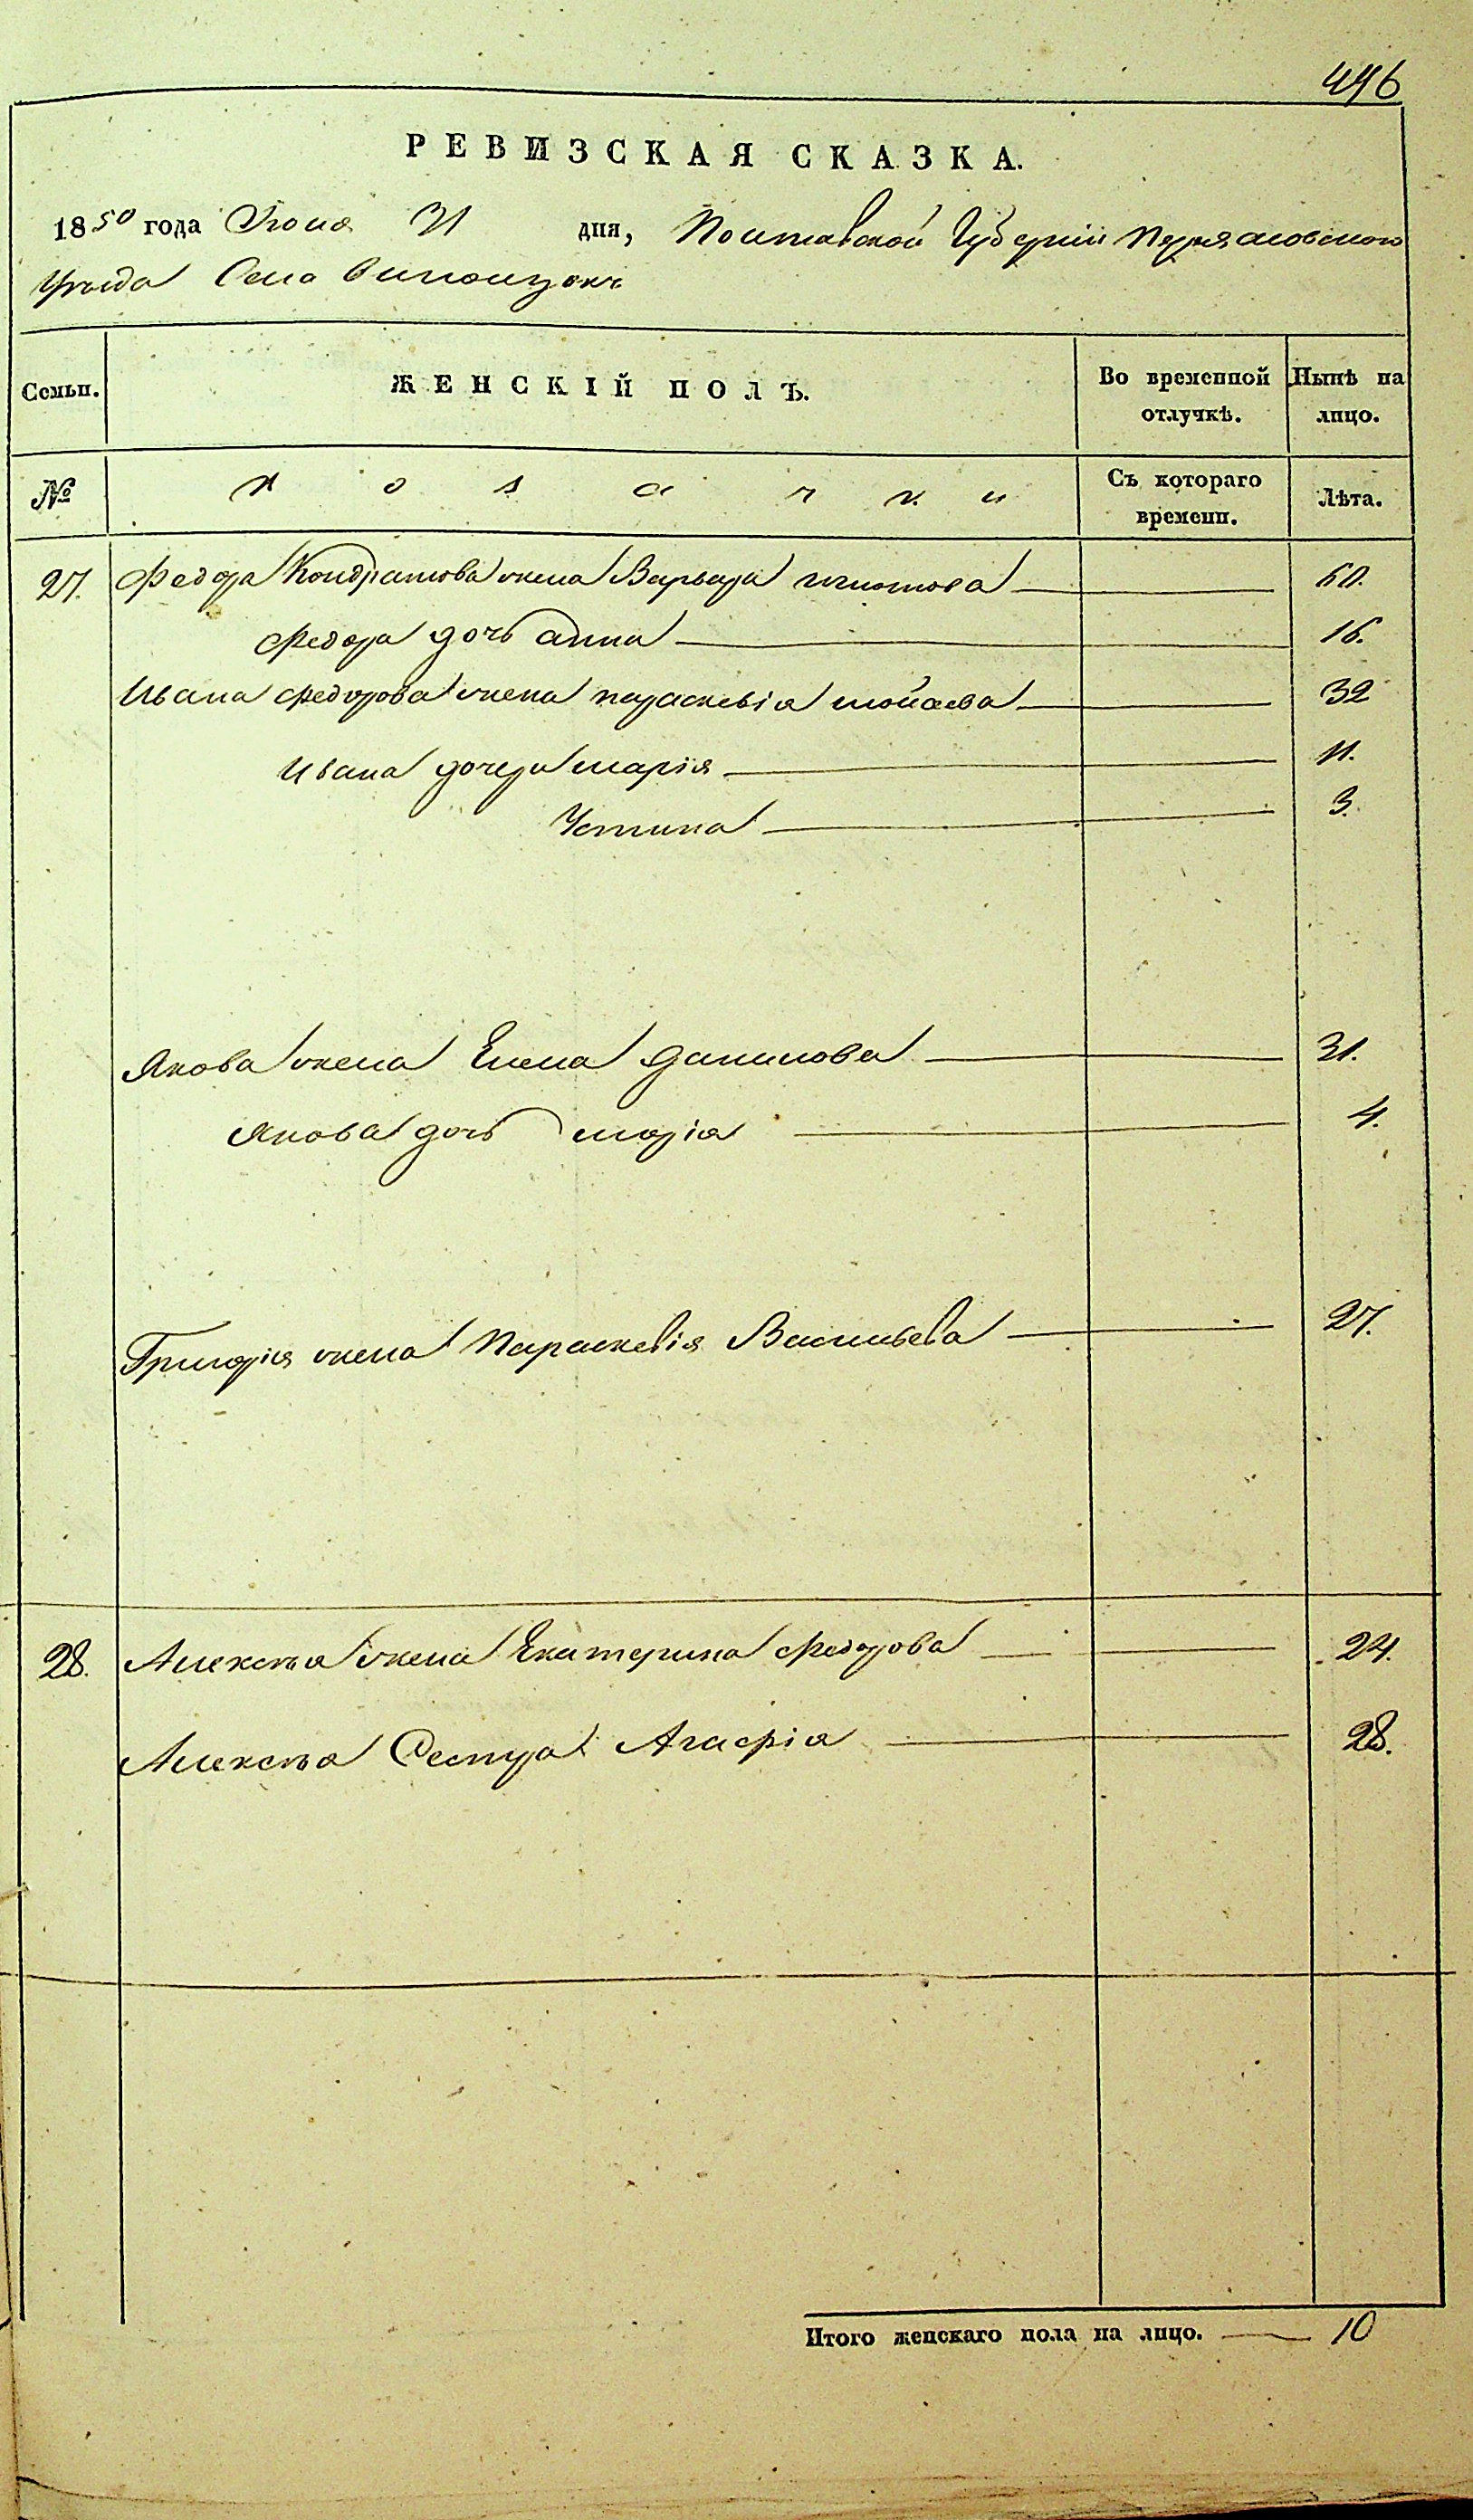 496
РЕВИЗСКАЯ СКАЗКА.
1850 года Июня 31 дня, Полтавской Губернии Переяславского
Уезда Села
Семьи. ЖЕНСКІЙ ПОЛЪ. Во временной отлучкѣ. Нынѣ на лицо.
№ Козачки Съ котораго времени. Лѣта.
27. Федора Кондратова жена Варвара 60.
Федора дочь Анна 16.
Ивана Федорова жена Параскевія Мойсева 32
Ивана дочери Марія 11.
Устина 3.
Якова жена Елена Данилова 31.
Якова дочь Марія 4.
Григорія жена Параскевія Васильева 27.
28. Алексѣя жена Екатерина Федорова 24.
Алексѣя Сестра Агафія 28.
Итого женскаго пола на лицо. 10